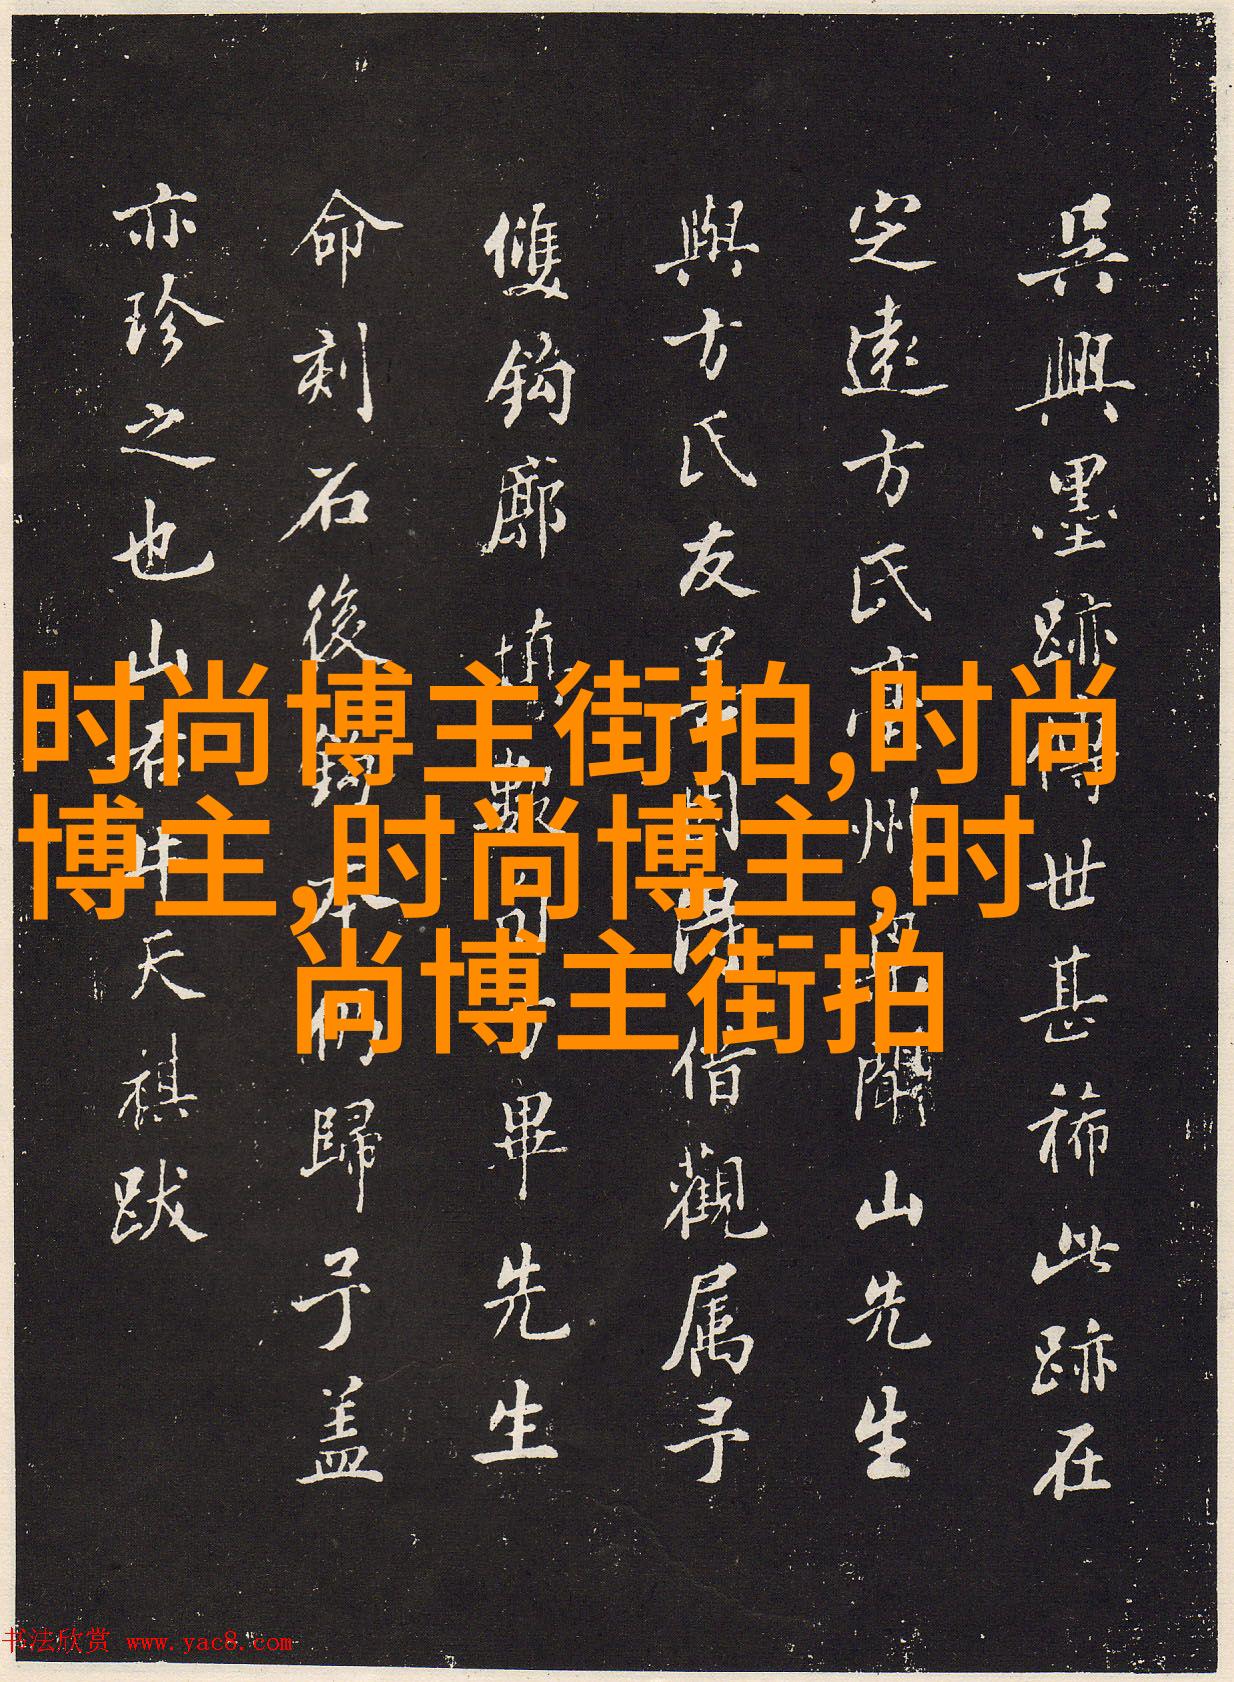 吳興墨跡傳世甚稀此跡在
定遠方氏 州 聞山先生
與方氏友 借觀属予
雙鈎廓填 畢先生
命刻石後鈎本仍歸予盖
亦珍之也山 天祺跋
时尚博主街拍,时尚
博主,时尚博主,时
尚博主街拍
书法欣赏 www.yac8.com